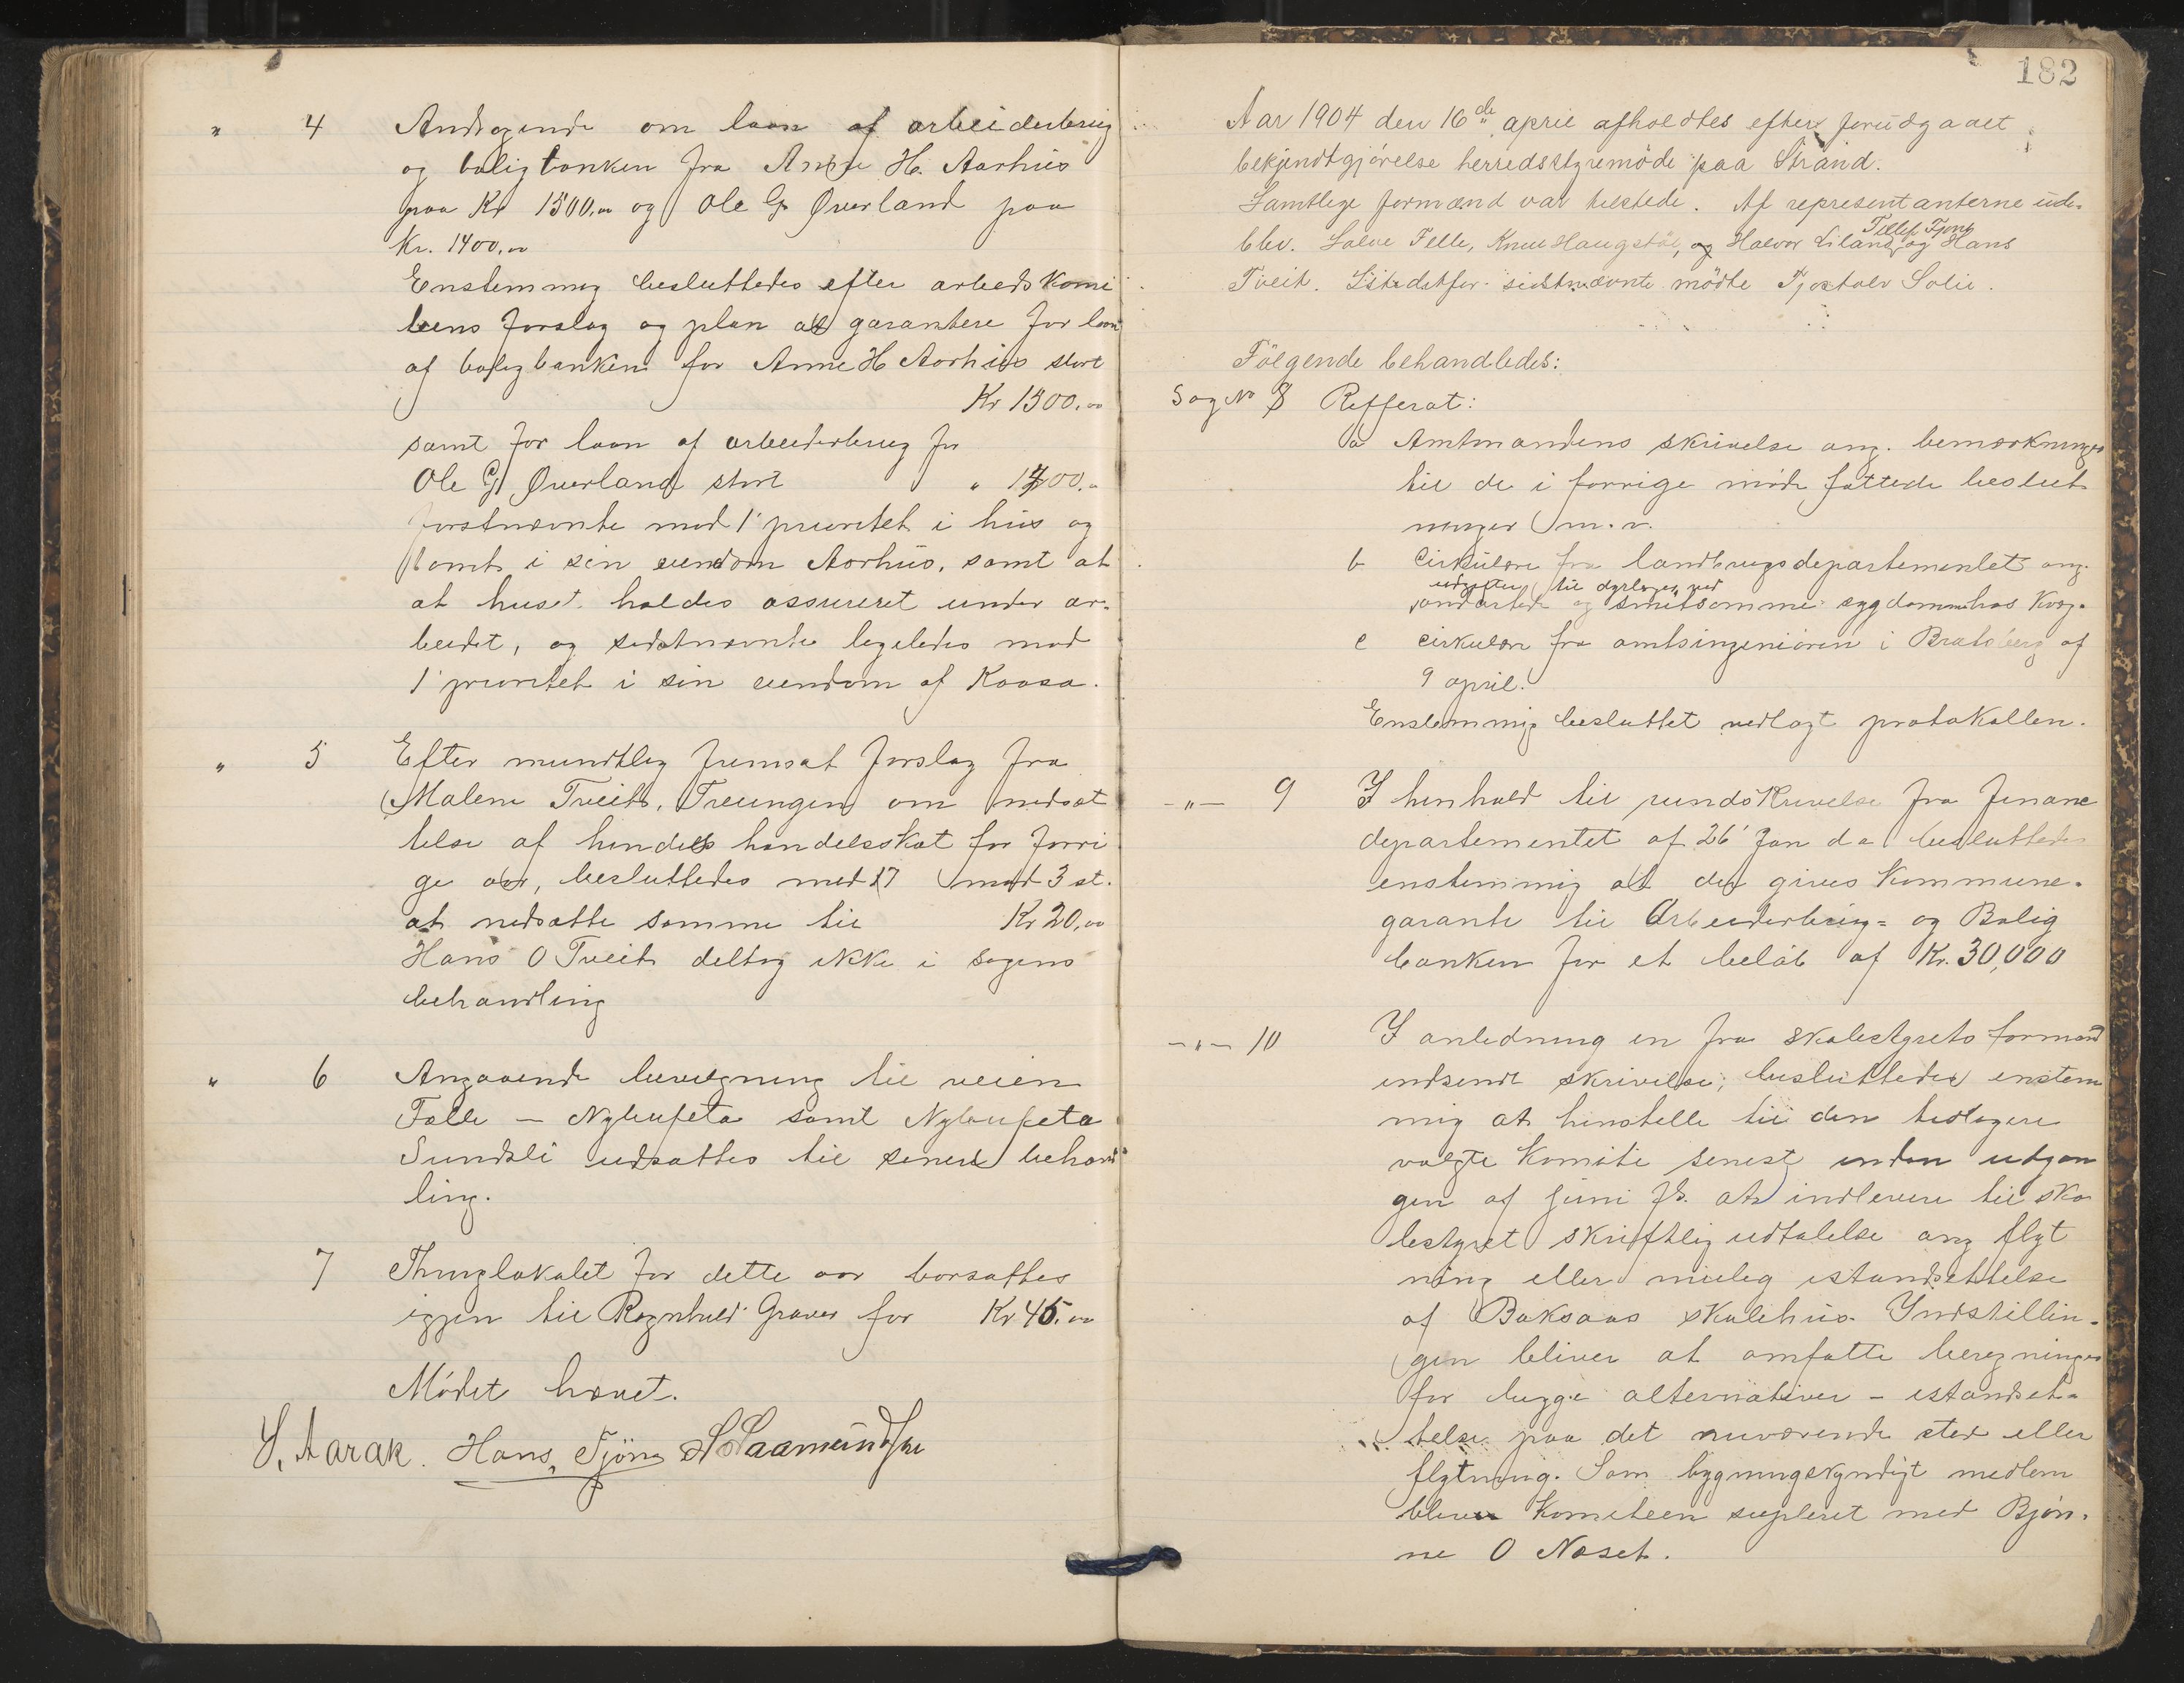 " 4 Andragende om laan af arbeiderbrug
og boligbanken fra Anne H. Aarhus
paa Kr 1500,00 og Ole G. Øverland paa
Kr. 1400,00
Enstemmig besluttedes efter arbeidskomi
teens forslag og plan at garantere for laan
af boligbanken for Anne H Aarhus stort
Kr 1500,00
samt for laan af arbeiderbrug for
Ole G Øverland stort " 1400,00
førstnævnte mod 1' prioritet i hus og
tomt i sin eiendom Aarhus, samt at
at huset holdes assureret under ar-
beidet, og sidstnævnte ligeledes mod
1' prioritet i sin eiendom af Kaasa.
" 5 Efter mundtlig fremsat forslag fra
Malene Tveit, Treungen om nedsæt
telse af hendes handelsskat for forri
ge aar, besluttedes med 17 mod 3 st.
at nedsætte samme til Kr 20,00
Hans O Tveit deltog ikke i sagens
behandling
" 6 Angaaende bevilgning til veien
Felle - Nylaupeta samt Nylaupeta
Sundsli udsattes til senere behand
ling.
7 Thinglokalet for dette aar borsattes
igjen til Ragnhild Graver for Kr 45,00
Mødet hævet.
S. Aarak. Hans Tjönn S Saamundsen
182
Aar 1904 den 16de april afholdtes efter forudgaaet
bekjendtgjörelse herredsstyremöde paa Strand.
Samtlige formænd var tilstede. Af representanterne ude-
Tellef Tjønn
blev. Salve Felle, Knut Haugsjå, og Halvor Liland, og Hans
Tveit. Istedetfor sidstnævnte mödte Tjostolv Solli.
Fölgende behandledes:
Sag No 8 Refferat:
a Amtmandens skrivelse ang. bemærkninger
til de i forrige møde fattede beslut
ninger m.v.
b Cirkulære fra landbrugsdepartementet ang.
udgifter til dyrlæger ved
ondartede og smitsomme sygdomme hos kvæg.
c cirkulære fra amtsingeniören i Bratsberg af
9 april.
Enstemmig besluttet vedlagt protokollen.
-"- 9 I henhold til rundskrivelse fra finans
departementet af 26' Jan d a besluttedes
enstemmig at der gives kommune-
garanti til Arbeiderbrug- og Bolig
banken for et beløb af Kr. 30,000
-"- 10 I anledning en fra skolestyrets formand
indsendt skrivelse, besluttedes enstem
mig at henstille til den tidligere
valgte komite senest inden udgan
gen af juni f. at indlevere til sko
lestyret skriftlig udtalelse ang flyt
ning eller mulig istandsættelse
af Baksaas skolehus. Indstillin-
gen bliver at omfatte beregninger
for begge alternativer - istandsæt-
telse paa det nuværende sted eller
flytning. Som bygningskyndigt medlem
blev komiteen supleret med Bjøn-
ne O Næset.